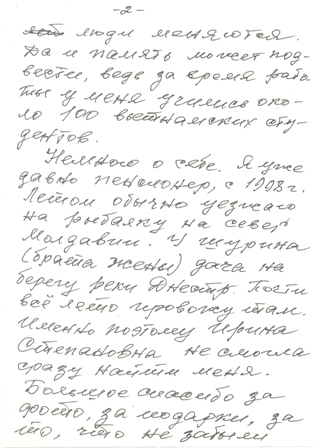 -2-
люди меняются.
Да и память может под-
вести, ведь за время рабо-
ты у меня учились око-
ло 100 вьетнамских сту-
дентов.
Немного о себе. Я уже
давно пенсионер, с 1998 г.
Летом обычно уезжаю
на рыбалку на север
Молдавии. У шурина
(брата жены) дача на
берегу реки Днестр. Почти
всё лето провожу там.
Именно поэтому Ирина
Степановна не смогла
сразу найти меня.
Большое спасибо за
фото, за подарки, за
то, что не забыли